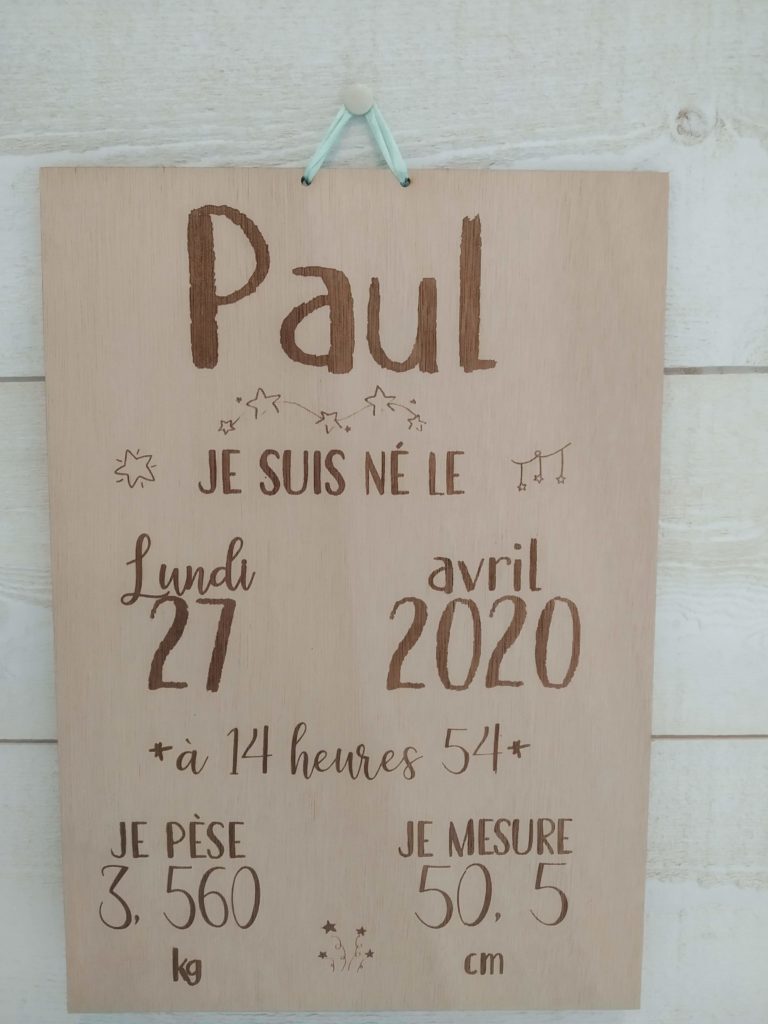 Paul
JE SUIS NÉ LE
Lundi avril
27 2020
*à 14 heures 54*
JE PÈSE JE MESURE
3, 560 50, 5
kg cm